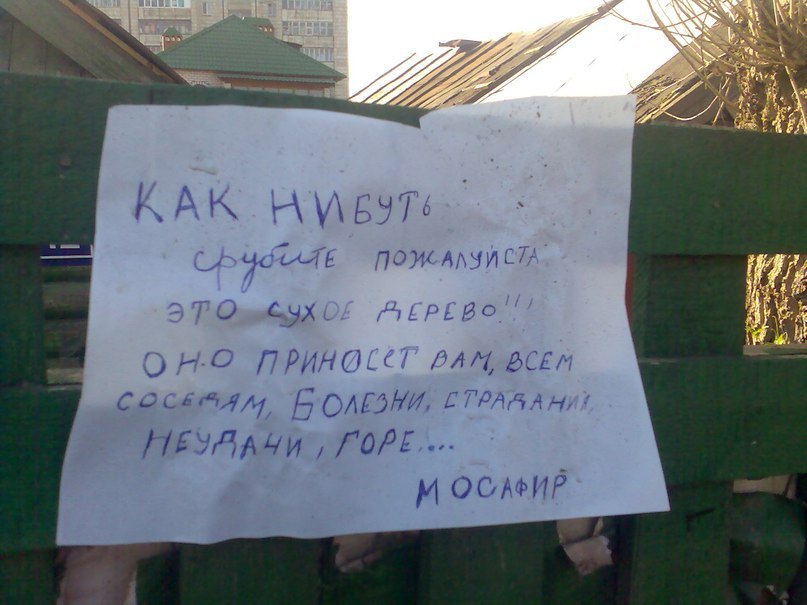 КАК НИБУТЬ
срубите ПОЖАЛУЙСТА
ЭТО СУХОЕ ДЕРЕВО!!!
ОНО ПРИНОСЕТ ВАМ, ВСЕМ
СОСЕДЯМ, БОЛЕЗНИ, СТРАДАНИЯ,
НЕУДАЧИ, ГОРЕ....
МОСАФИР